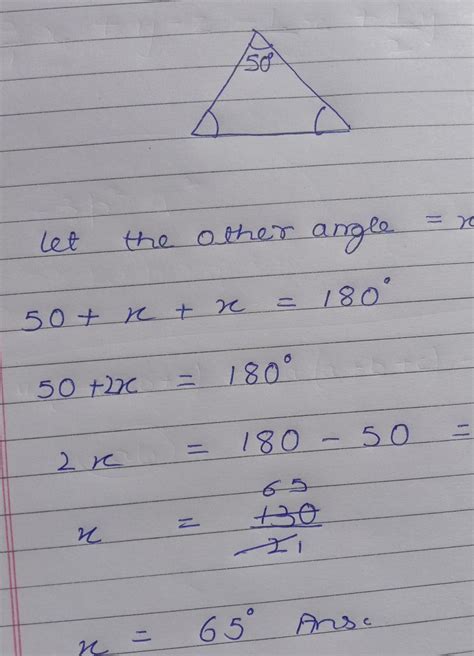 50°
let the other angle = x
50 + x + x = 180°
50 + 2x = 180°
2x = 180 - 50 =
65
x = 130
21
x = 65° Ans: